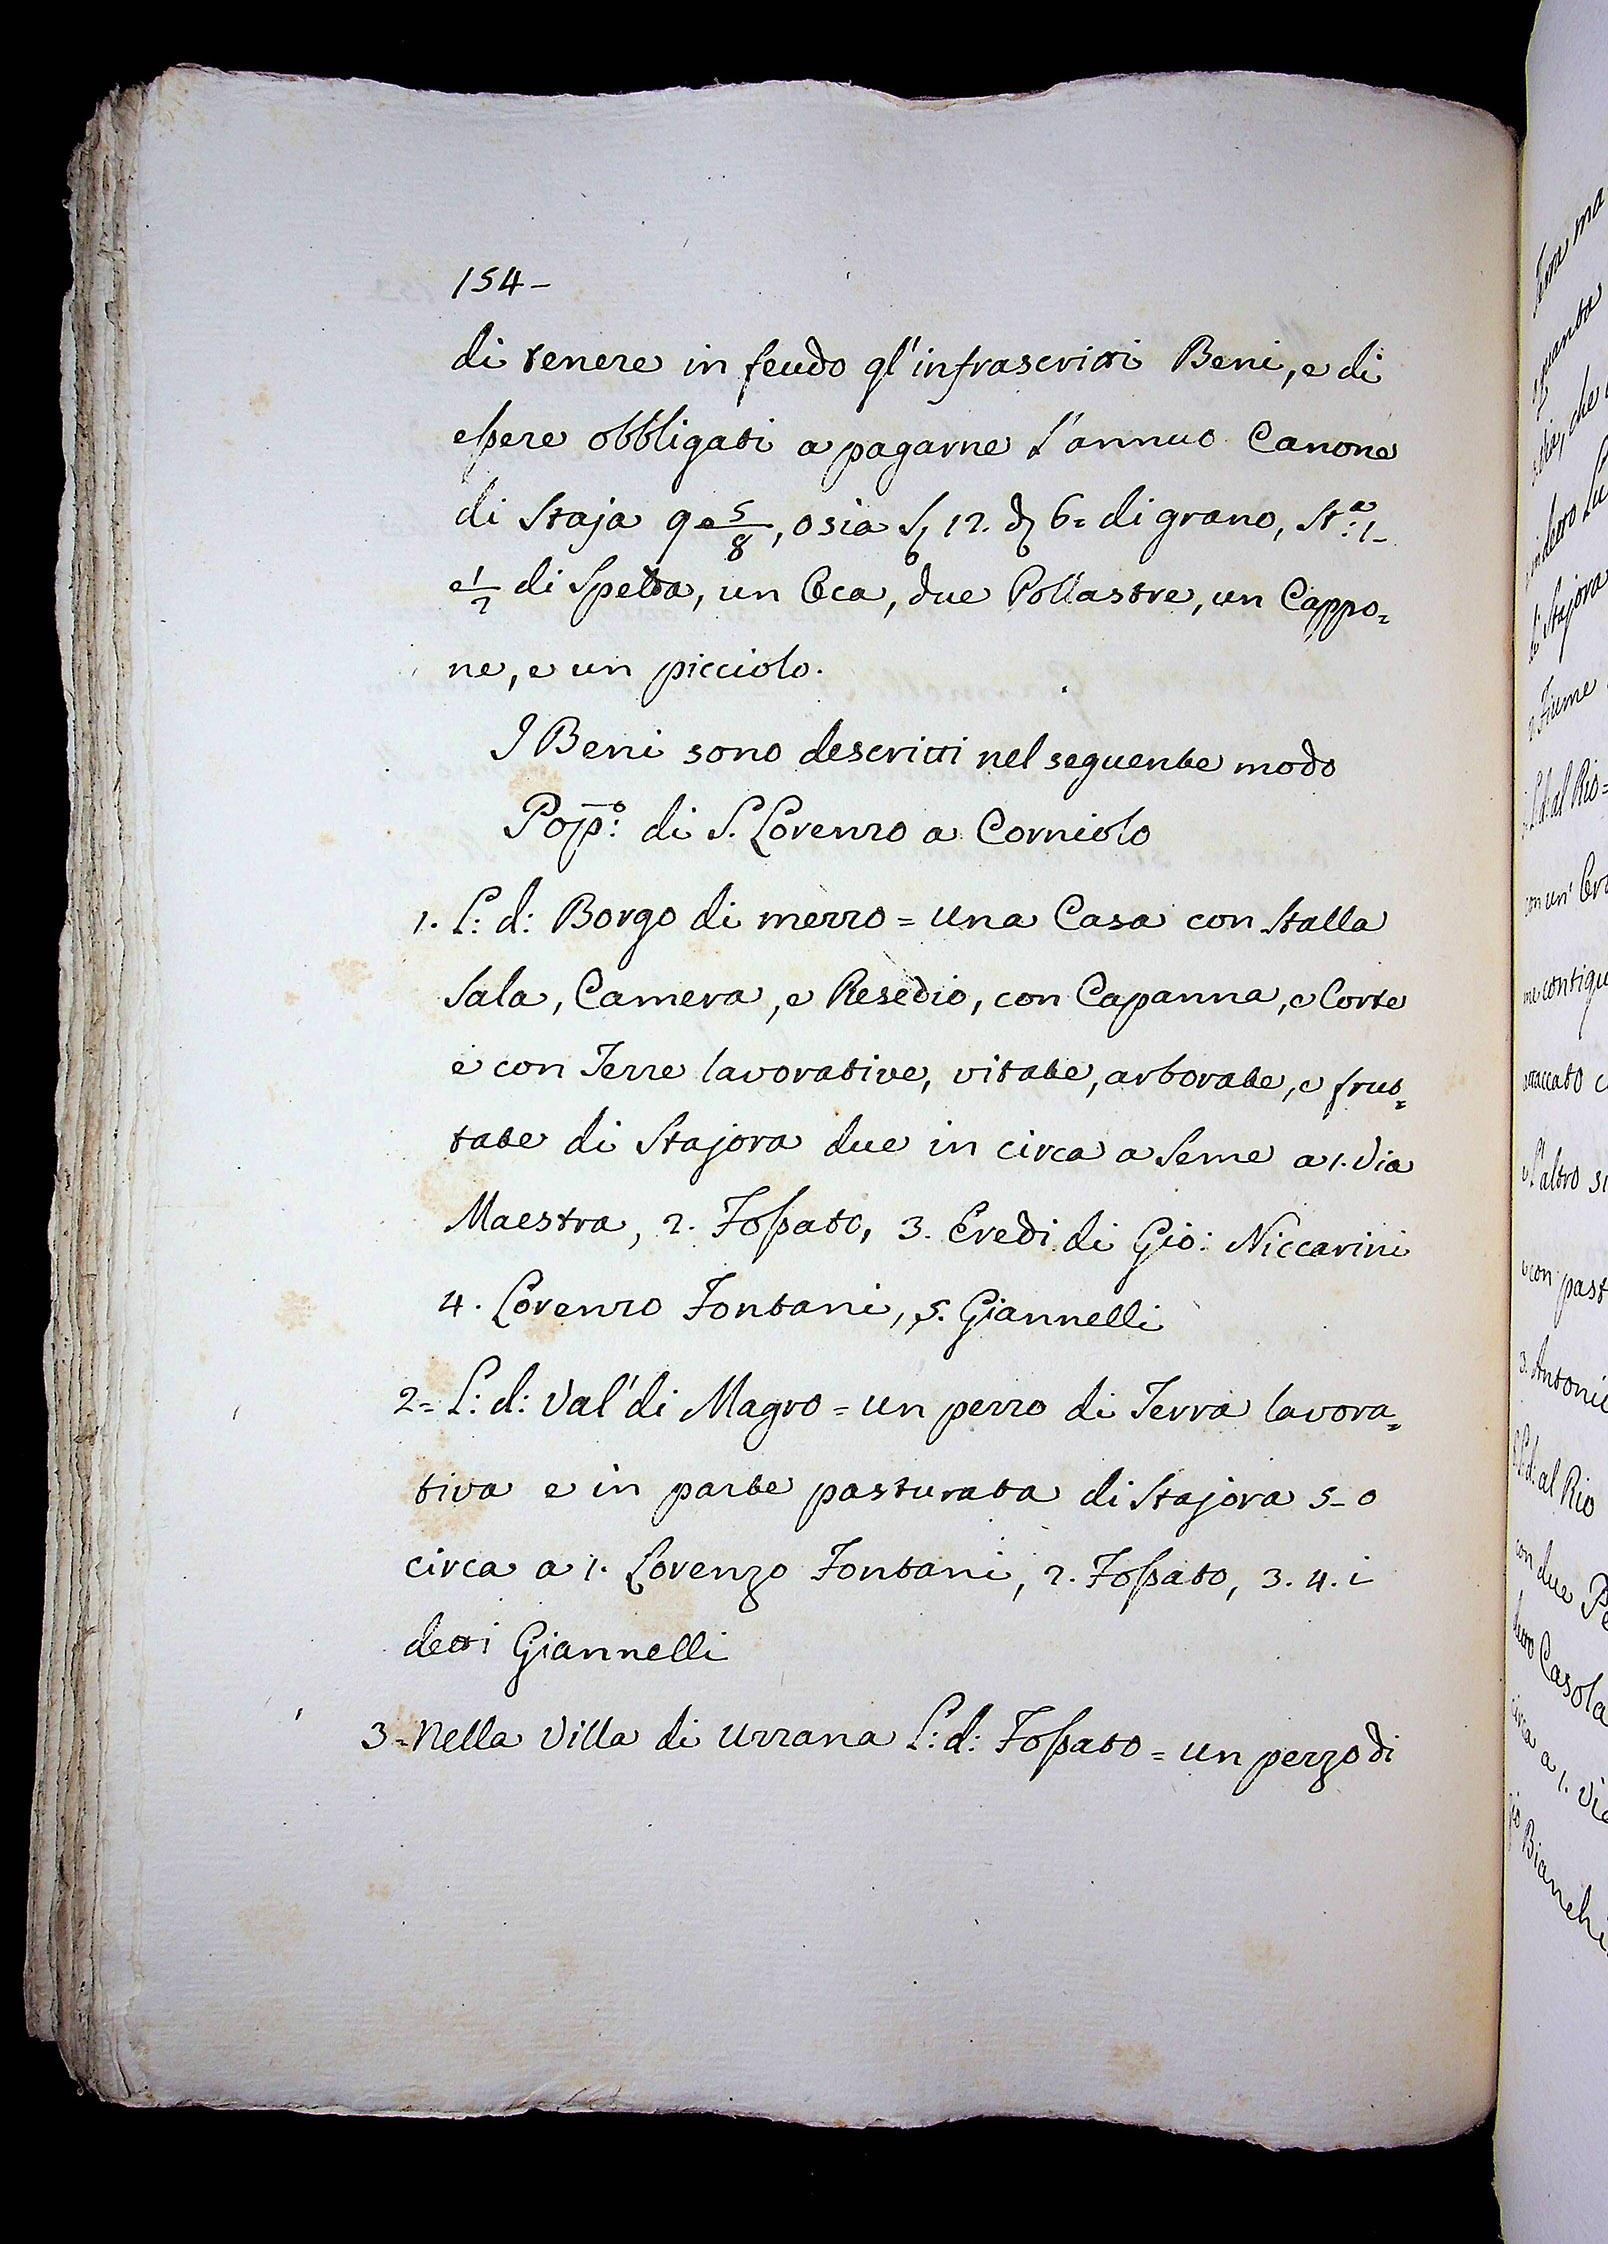 154-
di tenere in feudo gl'infrascritti Beni, e di
essere obbligati a pagarne l'annuo Canone
di Staja 9 e 5/8, o sia S 12. d 6= di grano, St.ª 1-
e 1/2 di Spelta, un Oca, due Pollastre, un Cappo=
ne, e un picciolo.
I Beni sono descritti nel seguente modo
Pop.º di S. Lorenzo a Corniolo
1. L: d: Borgo di mezzo = una Casa con Stalla
Sala, Camera, e Resedio, con Capanna, e Corte
e con Terre lavorative, vitate, arborate, e frut=
tate di Stajora due in circa a Seme a 1. Via
Maestra, 2. Fossato, 3. Eredi di Gio: Niccarini
4. Lorenzo Fontani, 5. Giannelli
2= L: d: Val' di Magro = un pezzo di Terra lavora=
tiva e in parte pasturata di Stajora 5- o
circa a 1. Lorenzo Fontani, 2. Fossato, 3. 4. i
detti Giannelli
3= Nella Villa di Uzzana L: d: Fossato = un pezzo di
quanto
che
di Stajora
2. Fiume
L: d: al Rio=
con un'
contigu
attaccato c
l'altro si
con past
3. Antonio
L: d: al Rio
con due Pe
detto Casola
circa a 1. Via
Bianchi